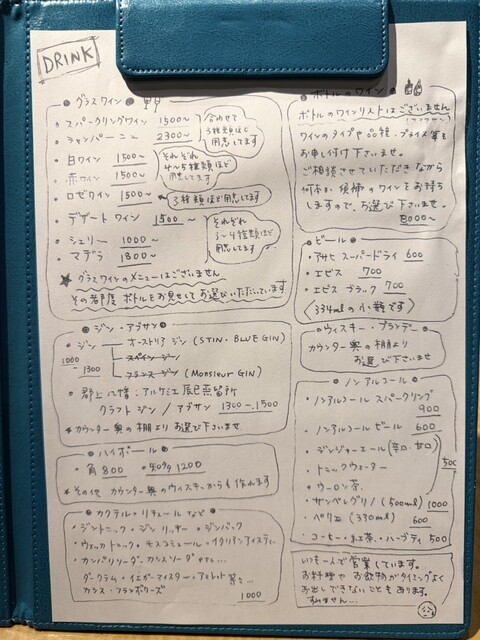 DRINK
グラスワイン
・スパークリングワイン 1500〜
・シャンパーニュ 2300〜
合わせて
3種類ほど
用意してます
・白ワイン 1500〜
・赤ワイン 1500〜
それぞれ
4〜5種類ほど
用意してます
・ロゼワイン 1500〜
3種類ほど用意してます
・デザートワイン 1500〜
・シェリー 1000〜
・マデラ 1800〜
それぞれ
3〜4種類ほど
用意してます
★グラスワインのメニューはございません
その都度 ボトルをお見せしてお選びいただいています
ジン・アブサン
・ジン オーストリア ジン (STIN・BLUE GIN)
1000〜1300
スペイン ジン
フランス ジン (Monsieur GIN)
・郡上八幡:アルケミエ辰巳蒸留所
クラフト ジン / アブサン 1300〜1500
*カウンター奥の棚よりお選び下さいませ
ハイボール
・角 800 ・知多 1200
*その他 カウンター奥のウイスキーからも作れます
カクテル・リキュールなど
・ジントニック・ジンリッキー・ジンバック
・ウォッカトニック・モスコミュール・イタリアンアイスティー
・カンパリソーダ・カシスソーダ
・イエガーマイスター・アマレット 等々…
1000
ボトルのワイン
ボトルのワインリストはございません
ワインのタイプや品種・プライス等を
お申し付け下さいませ。
ご相談させていただきながら
何本か候補のワインをお持ち
しますので、お選び下さいませ。
8000〜
ビール
・アサヒ スーパードライ 600
・エビス 700
・エビス ブラック 700
(334mlの小瓶です)
ウィスキー・ブランデー
カウンター奥の棚より
お選び下さいませ
ノンアルコール
・ノンアルコール スパークリング
900
・ノンアルコール ビール 600
・ジンジャーエール(辛口・甘口)
・トニックウォーター
・ウーロン茶
500
・サンペレグリノ (500ml) 1000
・ペリエ (330ml) 600
・コーヒー・紅茶・ハーブティ 500
いつも一人で営業しています。
お料理やお飲物がタイミングよく
お出しできないこともあります。
すみません…